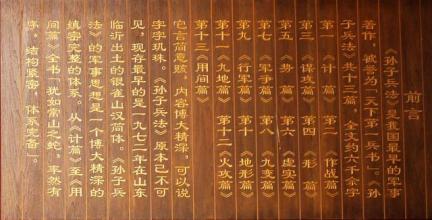 前言
《孙子兵法》是我国最早的军事
著作，被誉为“天下第一兵书”。《孙
子兵法》共十三篇，全文约六千余字
第一《计篇》 第二《作战篇》
第三《谋攻篇》 第四《形篇》
第五《势篇》 第六《虚实篇》
第七《军争篇》 第八《九变篇》
第九《行军篇》 第十《地形篇》
第十一《九地篇》 第十二《火攻篇》
第十三《用间篇》
它言简意赅，内容博大精深，可以说
字字玑珠。《孙子兵法》原本已不可
见，现存最早的是一九七二年在山东
临沂出土的银雀山汉简体。《孙子兵
法》的军事思想是一个博大精深的
缜密完整的体系。从《计篇》至《用
间篇》全书，犹如常山之蛇，率然有
序，结构紧密，体系完备”。